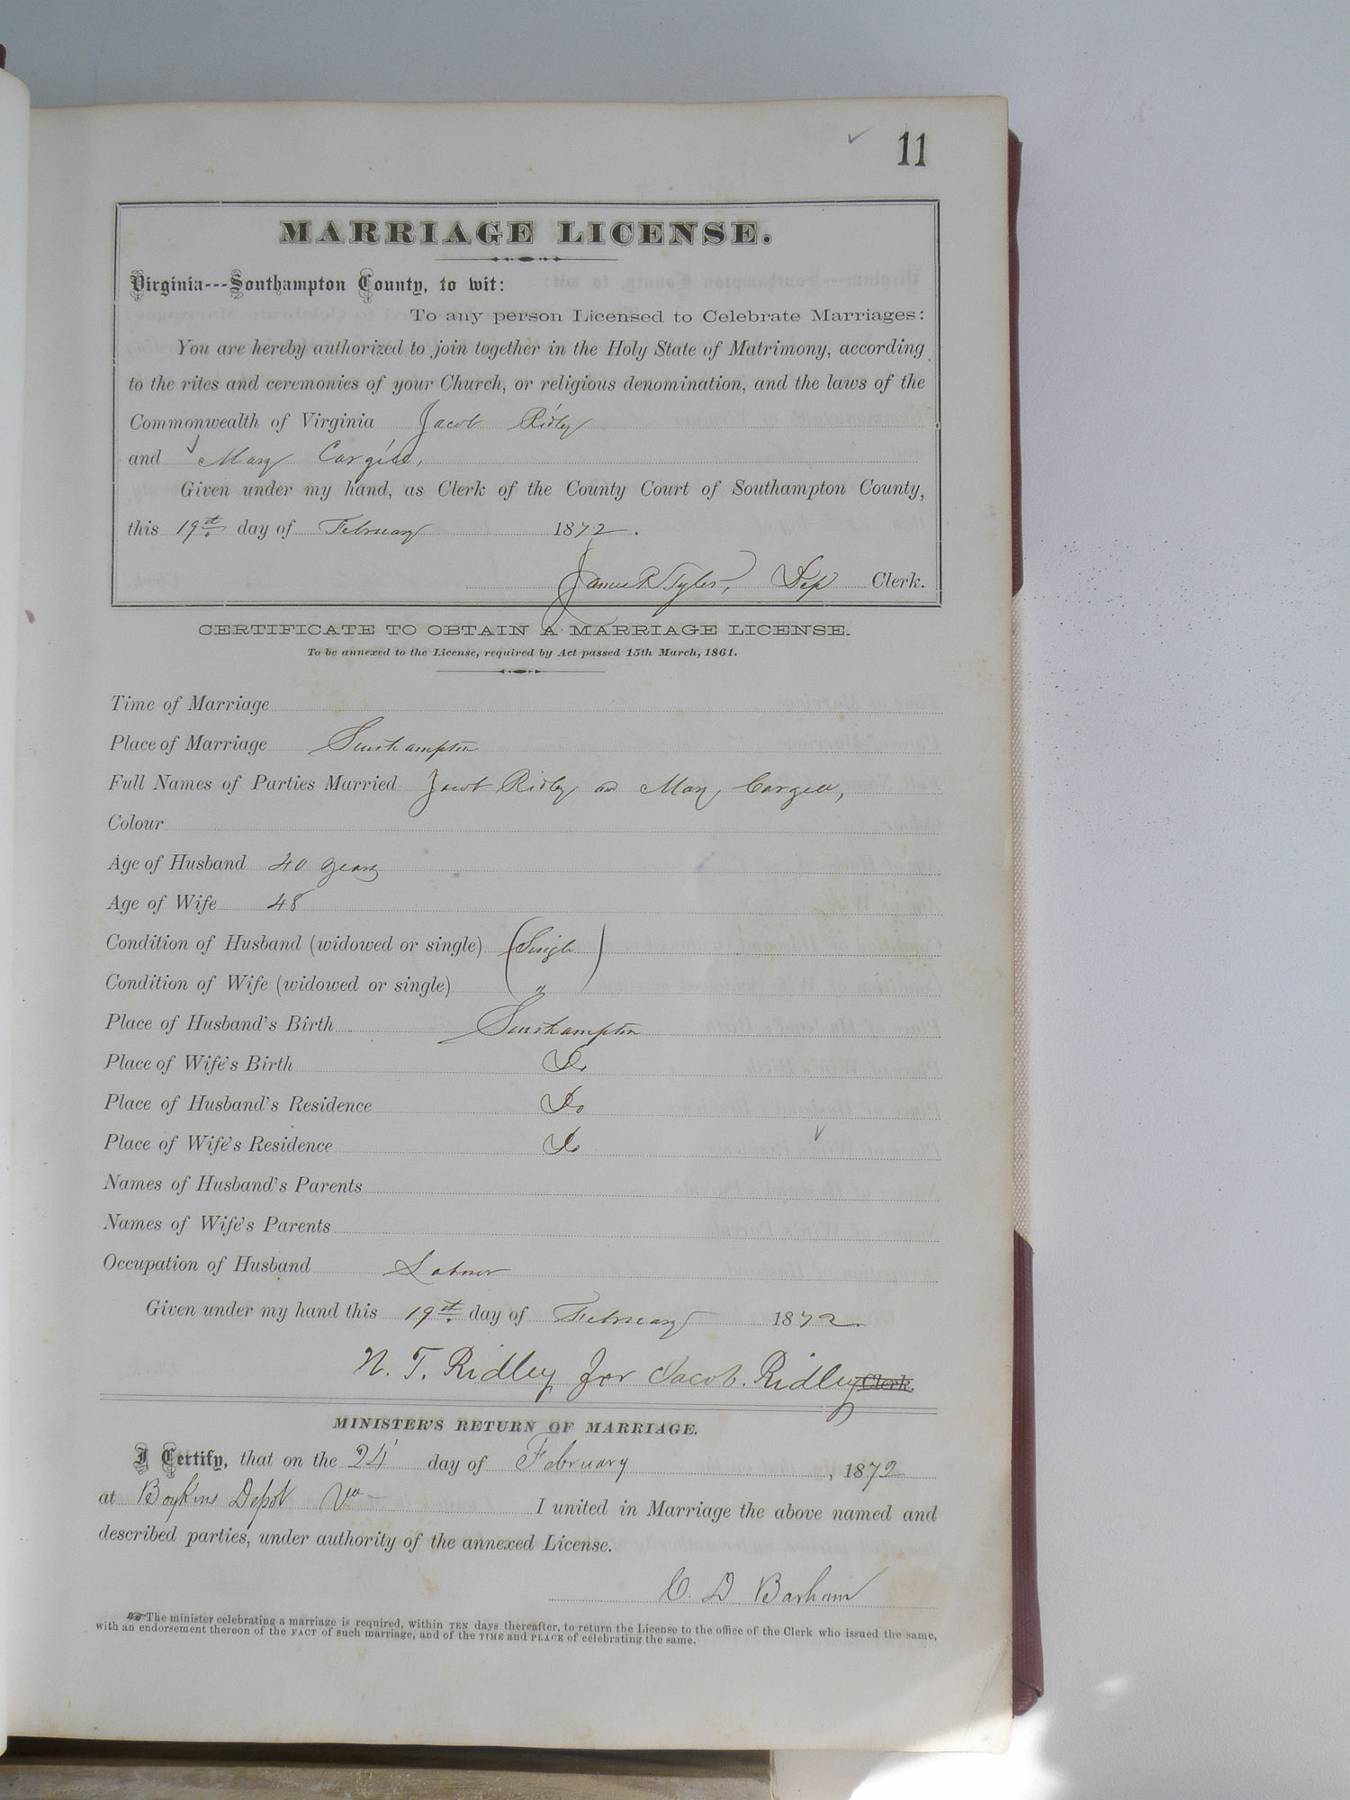 11
MARRIAGE LICENSE.
Virginia---Southampton County, to wit:
To any person Licensed to Celebrate Marriages:
You are hereby authorized to join together in the Holy State of Matrimony, according
to the rites and ceremonies of your Church, or religious denomination, and the laws of the
Commonwealth of Virginia Jacob Ridley
and Mary Cargill,
Given under my hand, as Clerk of the County Court of Southampton County,
this 19th day of February 1872.
James R. Tyler, Dep Clerk.
CERTIFICATE TO OBTAIN A MARRIAGE LICENSE.
To be annexed to the License, required by Act passed 15th March, 1861.
Time of Marriage
Place of Marriage Southampton
Full Names of Parties Married Jacob Ridley and Mary Cargill,
Colour
Age of Husband 40 years
Age of Wife 48
Condition of Husband (widowed or single) (Single)
Condition of Wife (widowed or single) "
Place of Husband's Birth Southampton
Place of Wife's Birth Do
Place of Husband's Residence Do
Place of Wife's Residence Do
Names of Husband's Parents
Names of Wife's Parents
Occupation of Husband Laborer
Given under my hand this 19th day of February 1872.
N. T. Ridley for Jacob. Ridley Clerk.
MINISTER'S RETURN OF MARRIAGE.
I Certify, that on the 24 day of February, 1872
at Boykins Depot Va I united in Marriage the above named and
described parties, under authority of the annexed License.
C. D. Barham
The minister celebrating a marriage is required, within TEN days thereafter, to return the License to the office of the Clerk who issued the same,
with an endorsement thereon of the FACT of such marriage, and of the TIME and PLACE of celebrating the same.